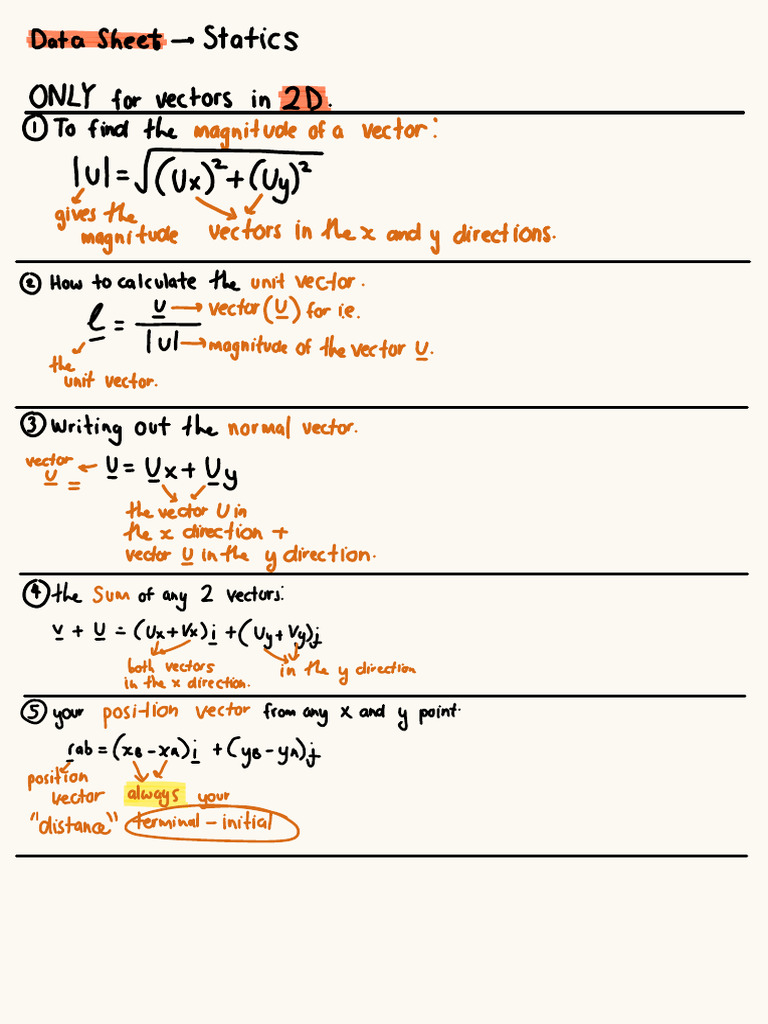 Data Sheet → Statics
ONLY for vectors in 2D.
① To find the magnitude of a vector:
|U| = √(Ux)² + (Uy)²
gives the magnitude
vectors in the x and y directions.
② How to calculate the unit vector.
e = U / |U|
→ vector (U) for i.e.
→ magnitude of the vector U.
the unit vector.
③ Writing out the normal vector.
vector U = ← U = Ux + Uy
the vector U in
the x direction +
vector U in the y direction.
④ the Sum of any 2 vectors:
v + U = (Ux + Vx)i + (Uy + Vy)j
both vectors
in the x direction.
in the y direction
⑤ your position vector from any x and y point.
rab = (xB - xA)i + (yB - yA)j
position
vector
"distance"
always your
terminal - initial